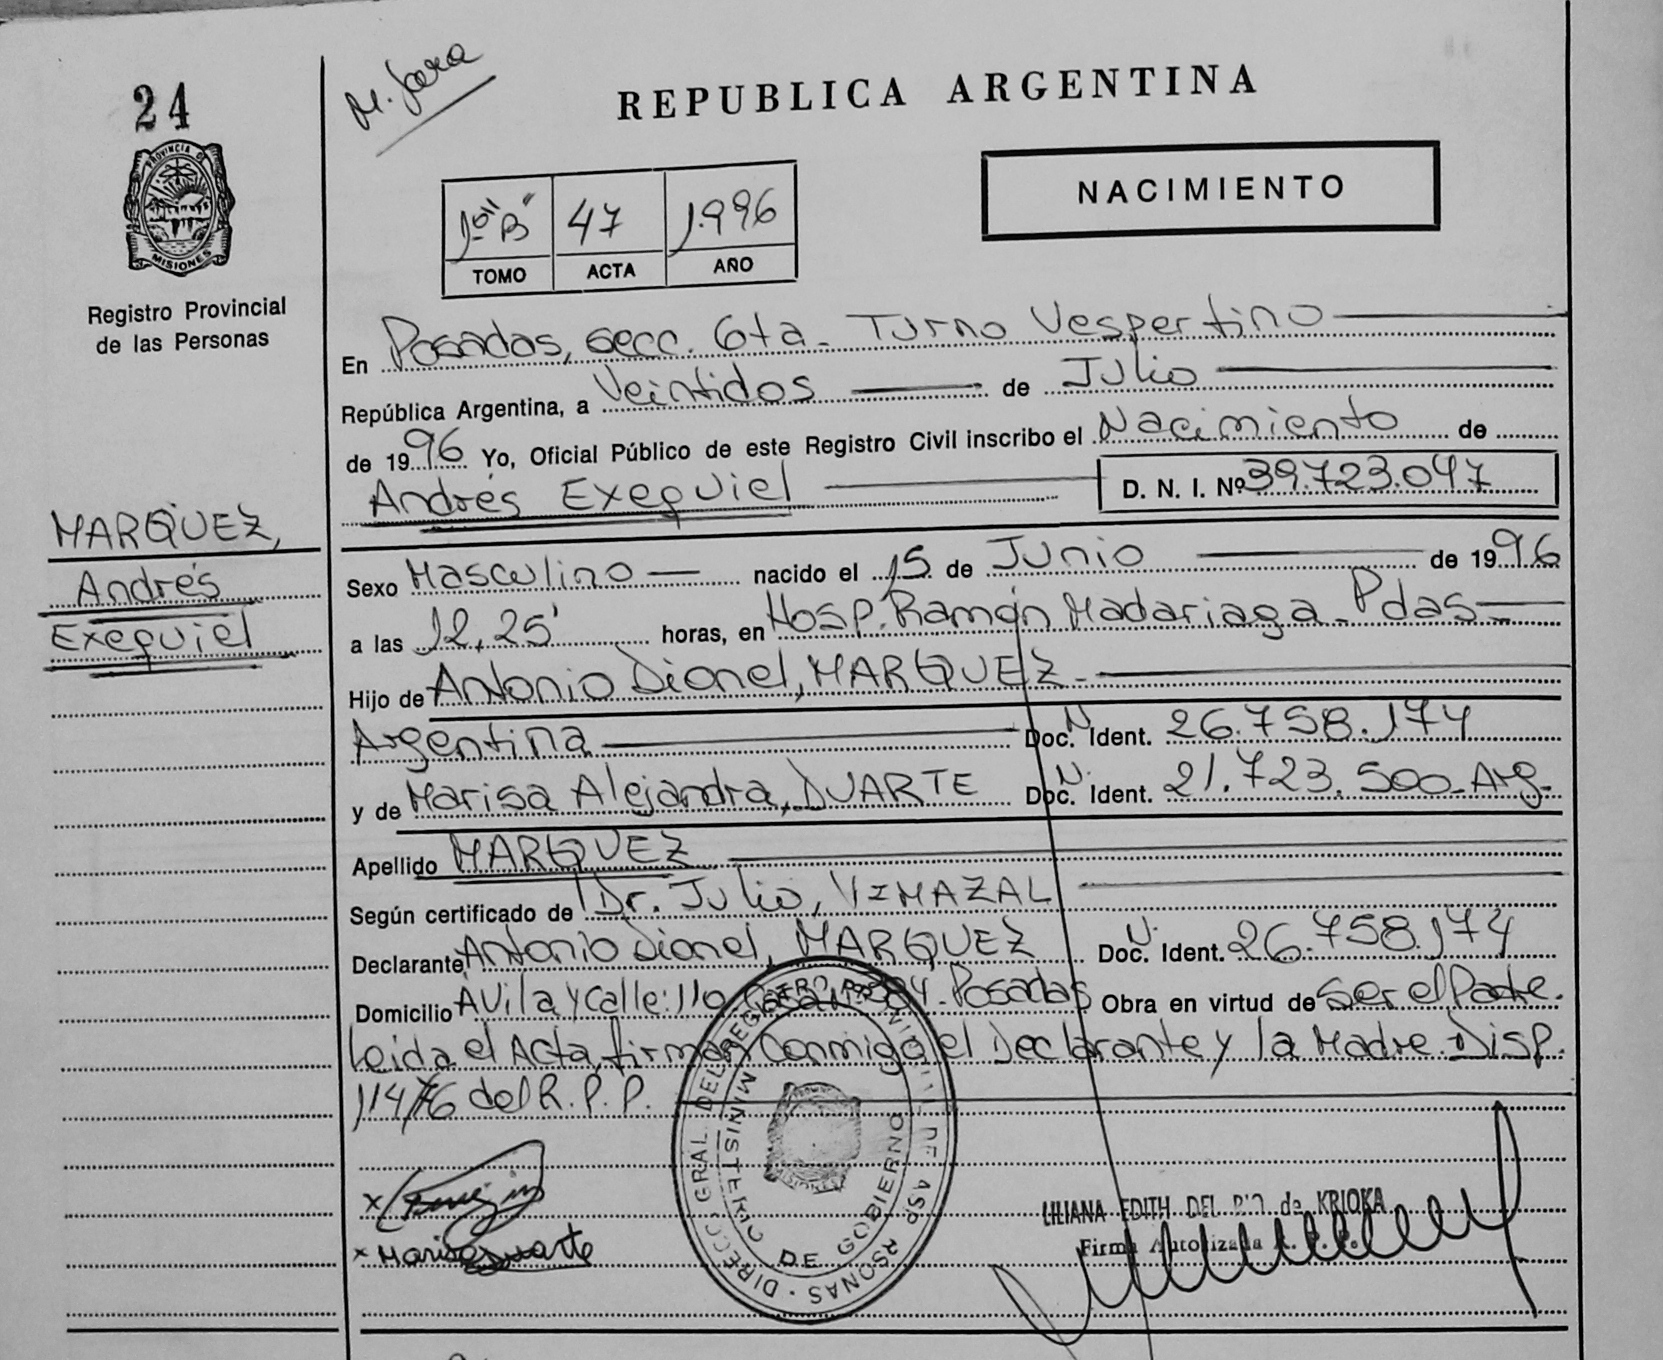 24
M. Jara
REPUBLICA ARGENTINA
PROVINCIA DE
MISIONES
Registro Provincial
de las Personas
1º "B" 47 1.996
TOMO ACTA AÑO
NACIMIENTO
En Posadas, secc. 6ta - Turno Vespertino
República Argentina, a Veintidos de Julio
de 1996 Yo, Oficial Público de este Registro Civil inscribo el Nacimiento de
Andrés Exequiel D. N. I. Nº 39.723.047
MARQUEZ,
Andrés
Exequiel
Sexo Masculino nacido el 15 de Junio de 1996
a las 12,25' horas, en Hosp. Ramón Madariaga - Pdas
Hijo de Antonio Dionel, MARQUEZ -
Argentina Doc. N. Ident. 26.758.174
y de Marisa Alejandra, DUARTE Doc. N. Ident. 21.723.500 - Arg.
Apellido MARQUEZ
Según certificado de Dr. Julio, VIMAZAL
Declarante Antonio Dionel, MARQUEZ Doc. N. Ident. 26.758.174
Domicilio Avila y Calle: 110 Casa 304 - Posadas Obra en virtud de Ser el Padre.
Leida el Acta, firman Conmigo el Declarante y la Madre. Disp.
114/76 del R. P. P.
DIRECC GRAL DEL REGISTRO DE PERSONAS
MINISTERIO DE GOBIERNO
MISIONES
x
x Marisa Duarte
LILIANA EDITH DEL de KRIOKA
Firma Autorizada